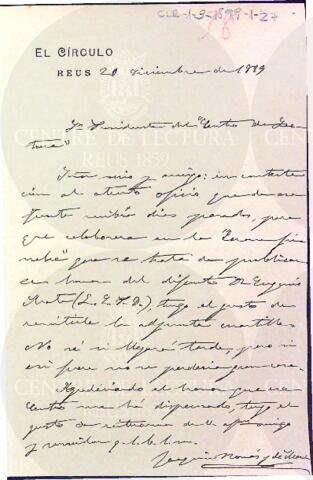 CLR-1-3-1899-1-27
EL CÍRCULO
REUS 20 diciembre de 1889
Sr. Presidente del "Centro de Lec-
tura"
Señor mio y amigo: en contesta-
ción al atento oficio que de ese
recibí dias pasados, para
que colaborara en la "Corona fú-
nebre" que se trata de publicar
en honor del difunto D. Eugenio
(Q. E. P. D.), tengo el gusto de
remitirle la adjunta cuartilla.
No sé si llegará tarde, pero si
así fuera no se perderia gran cosa.
Agradeciendo el honor que ese
Centro me ha dispensado, tengo el
gusto de reiterarme de V. affmo. amigo
y servidor q. b. s. m.
Joaquin
CENTRE DE LECTURA
REUS 1859